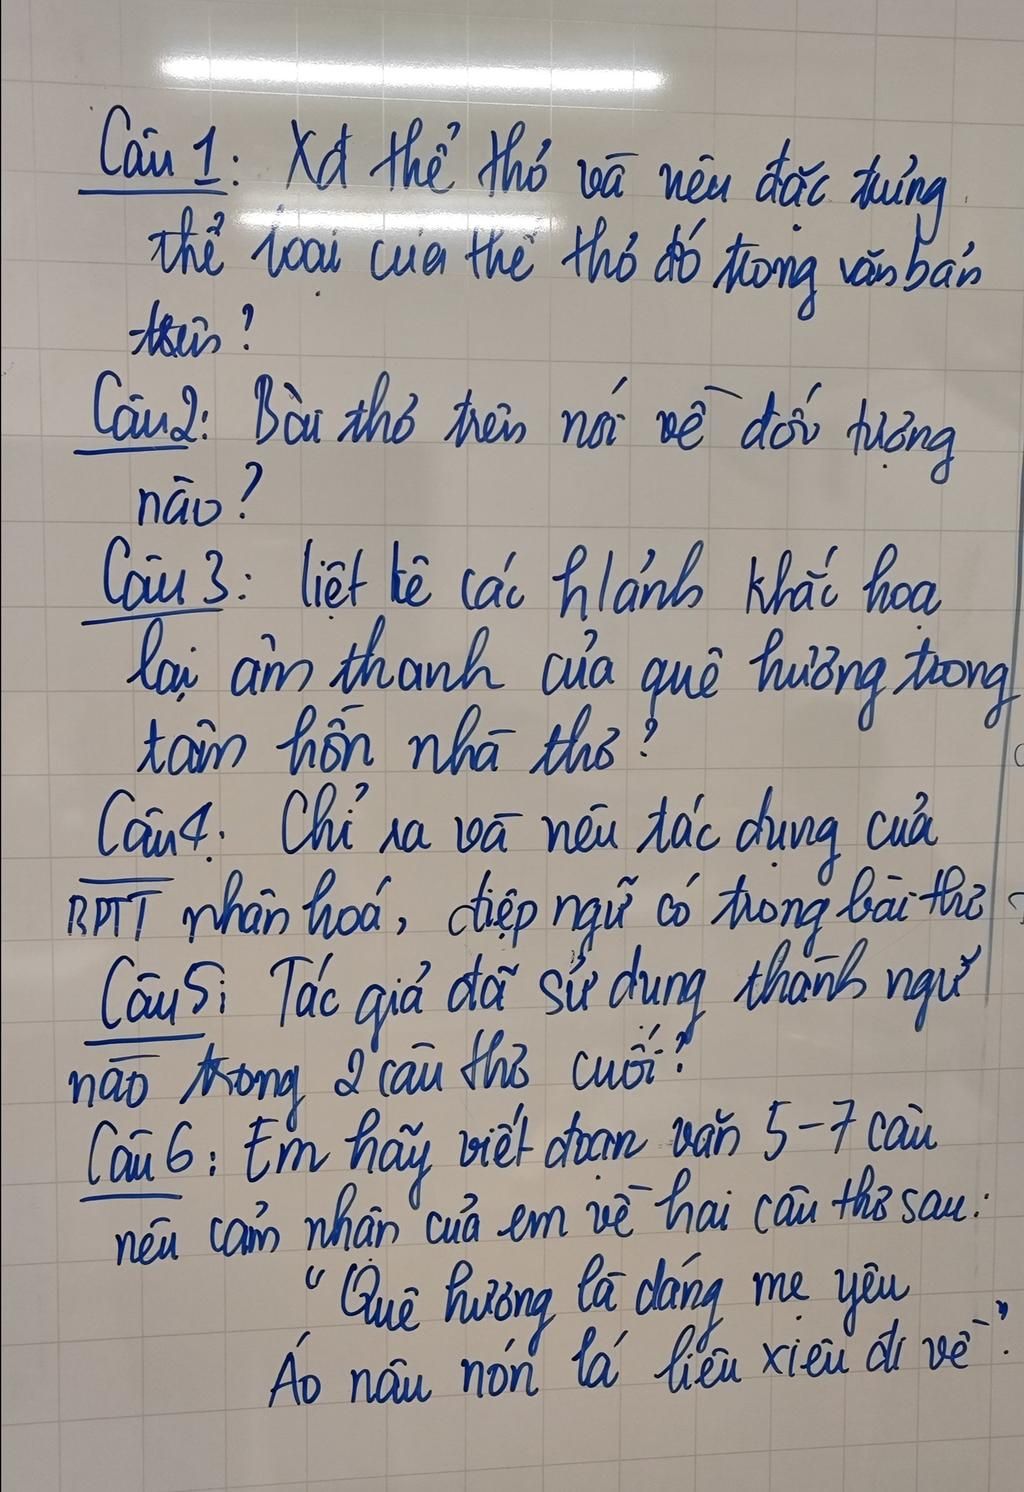 Câu 1: Xđ thể thơ và nêu đặc trưng
thể loại của thể thơ đó trong văn bản
trên?
Câu 2: Bài thơ trên nói về đối tượng
nào?
Câu 3: liệt kê các h/ảnh khắc hoạ
lại âm thanh của quê hương trong
tâm hồn nhà thơ?
Câu 4: Chỉ ra và nêu tác dụng của
BPTT nhân hoá, điệp ngữ có trong bài thơ
Câu 5: Tác giả đã sử dụng thành ngữ
nào trong 2 câu thơ cuối?
Câu 6: Em hãy viết đoạn văn 5-7 câu
nêu cảm nhận của em về hai câu thơ sau:
"Quê hương là dáng mẹ yêu
Áo nâu nón lá liêu xiêu đi về".